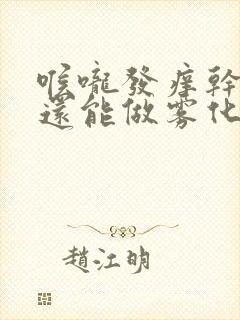 喉嚨發癢幹
還能做霧化
趙江明